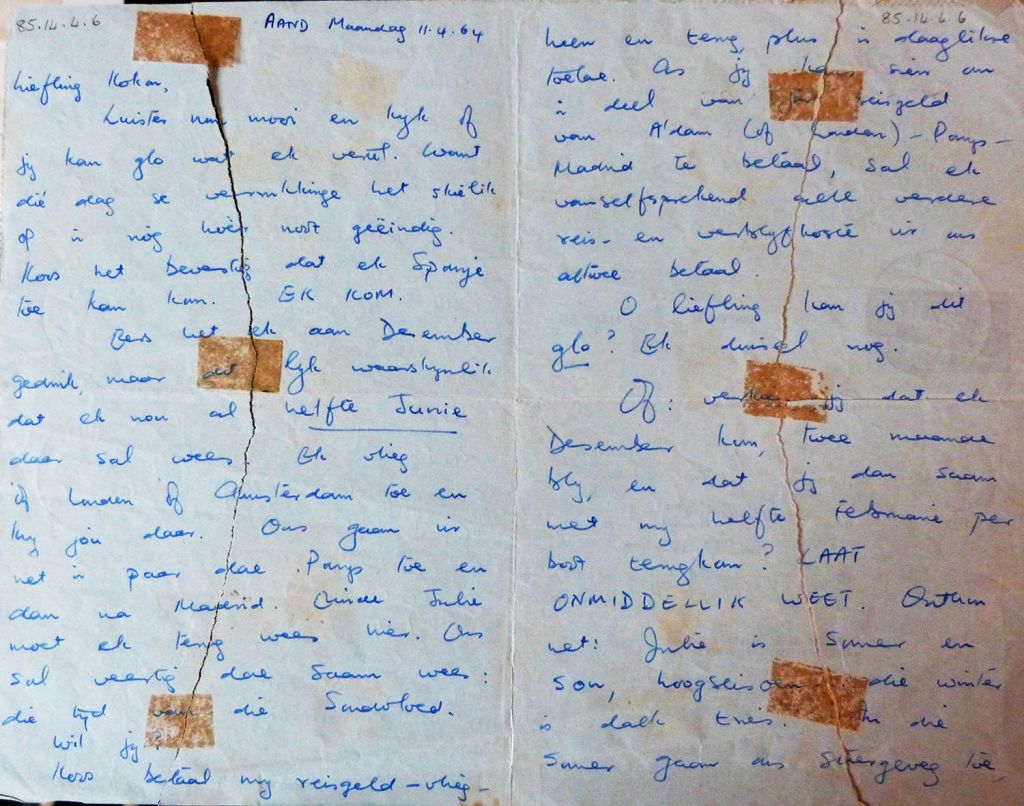 85.14.4.6
AAND Maandag 11.4.64
Liefling Kokon,
Luister nou mooi en kyk of
jy kan glo wat ek vertel. Want
dié dag se verwikkelinge het skielik
of 'n nóg hoër noot geëindig.
Koos het bevestig dat ek Spanje
toe kan kom. EK KOM.
Eers het ek aan Desember
gedink, maar dit lyk waarskynlik
dat ek nou al helfte Junie
daar sal wees. Ek vlieg
óf Londen óf Amsterdam toe en
kry jou daar. Ons gaan vir
net 'n paar dae Parys toe en
dan na Madrid. Einde Julie
moet ek terug wees hier. Ons
sal veertig dae saam wees:
die tyd van die Sondvloed.
Wil jy?
Koos betaal my reisgeld – vlieg-
85.14.4.6
heen en terug, plus 'n daaglikse
toelae. As jy kans sien om
'n deel van jou reisgeld
van A'dam (of Londen) – Parys –
Madrid te betaal, sal ek
vanselfsprekend alle verdere
reis- en verblyfkoste vir ons
altwee betaal.
O liefling kan jy dit
glo? Ek duisel nog.
Óf: verkies jy dat ek
Desember kom, twee maande
bly, en dat jy dan saam
met my helfte Februarie per
boot terugkom? LAAT
ONMIDDELLIK WEET. Onthou
net: Julie is somer en
son, hoogseisoen – die winter
is dalk triest. In die
somer gaan ons stiergeveg toe,